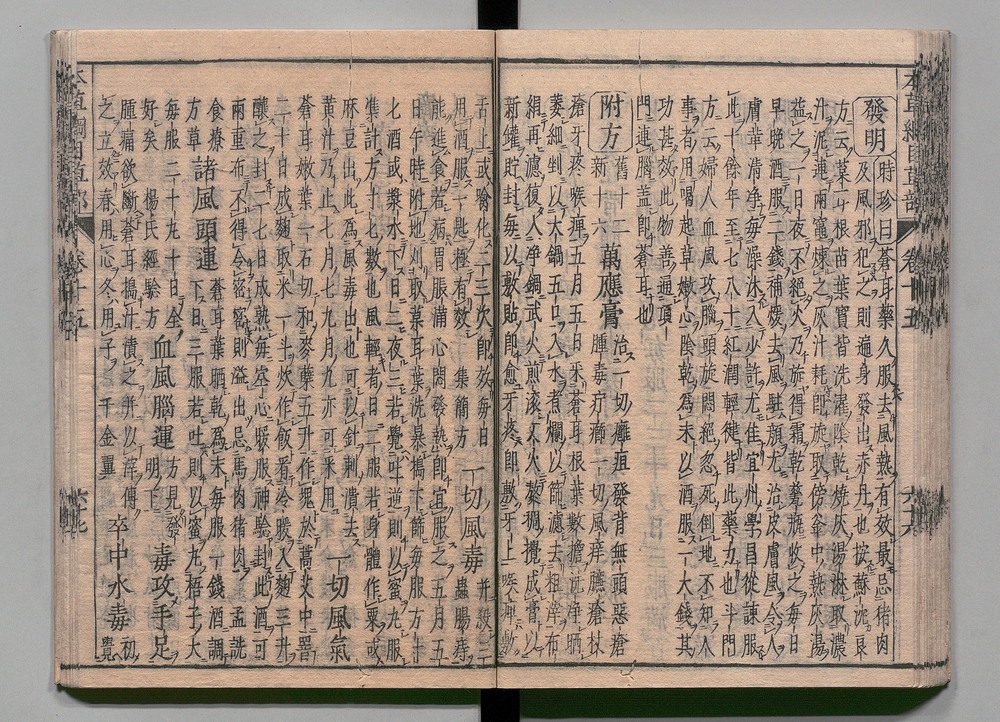 發明 時珍曰蒼耳藥久服去風熱有效最忌猪肉
及風邪犯之則遍身發出赤丹也按蘇沈良
方云葈耳根苗葉實皆洗濯陰乾燒灰湯淋取濃
汁泥連兩竈煉之灰汁耗即旋取傍釜中熱灰湯
益之一日夜不絕火乃旋得霜乾甆瓶收之每日
早晚酒服二錢補煖去風駐顏尤治皮膚風令人
膚革清淨每澡沐入少許尤佳宜州學昌從諫服
此十餘年至七八十紅潤輕健皆此藥力也斗門
方云婦人血風攻腦頭旋悶絕忽死倒地不知人
事者用喝起草嫩心陰乾為末以酒服一大錢其
功甚效此物善通頂
門連腦蓋即蒼耳也
附方 舊十二 新十六 萬應膏 治一切癰疽發背無頭惡瘡
腫毒疔癤一切風痒臁瘡杖
瘡牙疼喉痺五月五日采蒼耳根葉數擔洗淨晒
萎細剉以大鍋五口入水煮爛以篩濾去粗滓布
絹再濾復入淨鍋武火煎滾文火熬稠攪成膏以
新罐貯封每以敷貼即愈牙疼即敷牙上
舌上或噙化二三次即效每日
用酒服一匙極有效 集簡方 一切風毒 并殺三
蟲腸痔
能進食若病胃脹滿心悶發熱即宜服之五月五
日午時附地刈取葈耳葉洗暴燥搗下篩每服方寸
七酒或漿水下日二夜三若覺吐逆則以蜜丸服
準計方寸七數也風輕者日二服若身體作粟或
麻豆出此為風毒出也可以針刺潰去
黃汁乃止七月七九月九亦可采用 一切風氣
蒼耳嫩葉一石切和麥糵五升作塊於蒿艾中罯
二十日成麴取米一斗炊作飯看冷暖入麴三升
釀之封一二七日成熟每空心暖服神驗封此酒可
兩重布不得令密密則溢出忌馬肉猪肉 孟詵
食療 諸風頭運 蒼耳葉晒乾為末每服一錢酒調
方草 下日三服若吐則以蜜丸梧子大
每服二十丸十日全
好矣 楊氏經驗方 血風腦運 方見發
明下 毒攻手足
腫痛欲斷蒼耳搗汁漬之并以滓傅
之立效春用心冬用子 千金翼 卒中水毒 初
覺
卷十五